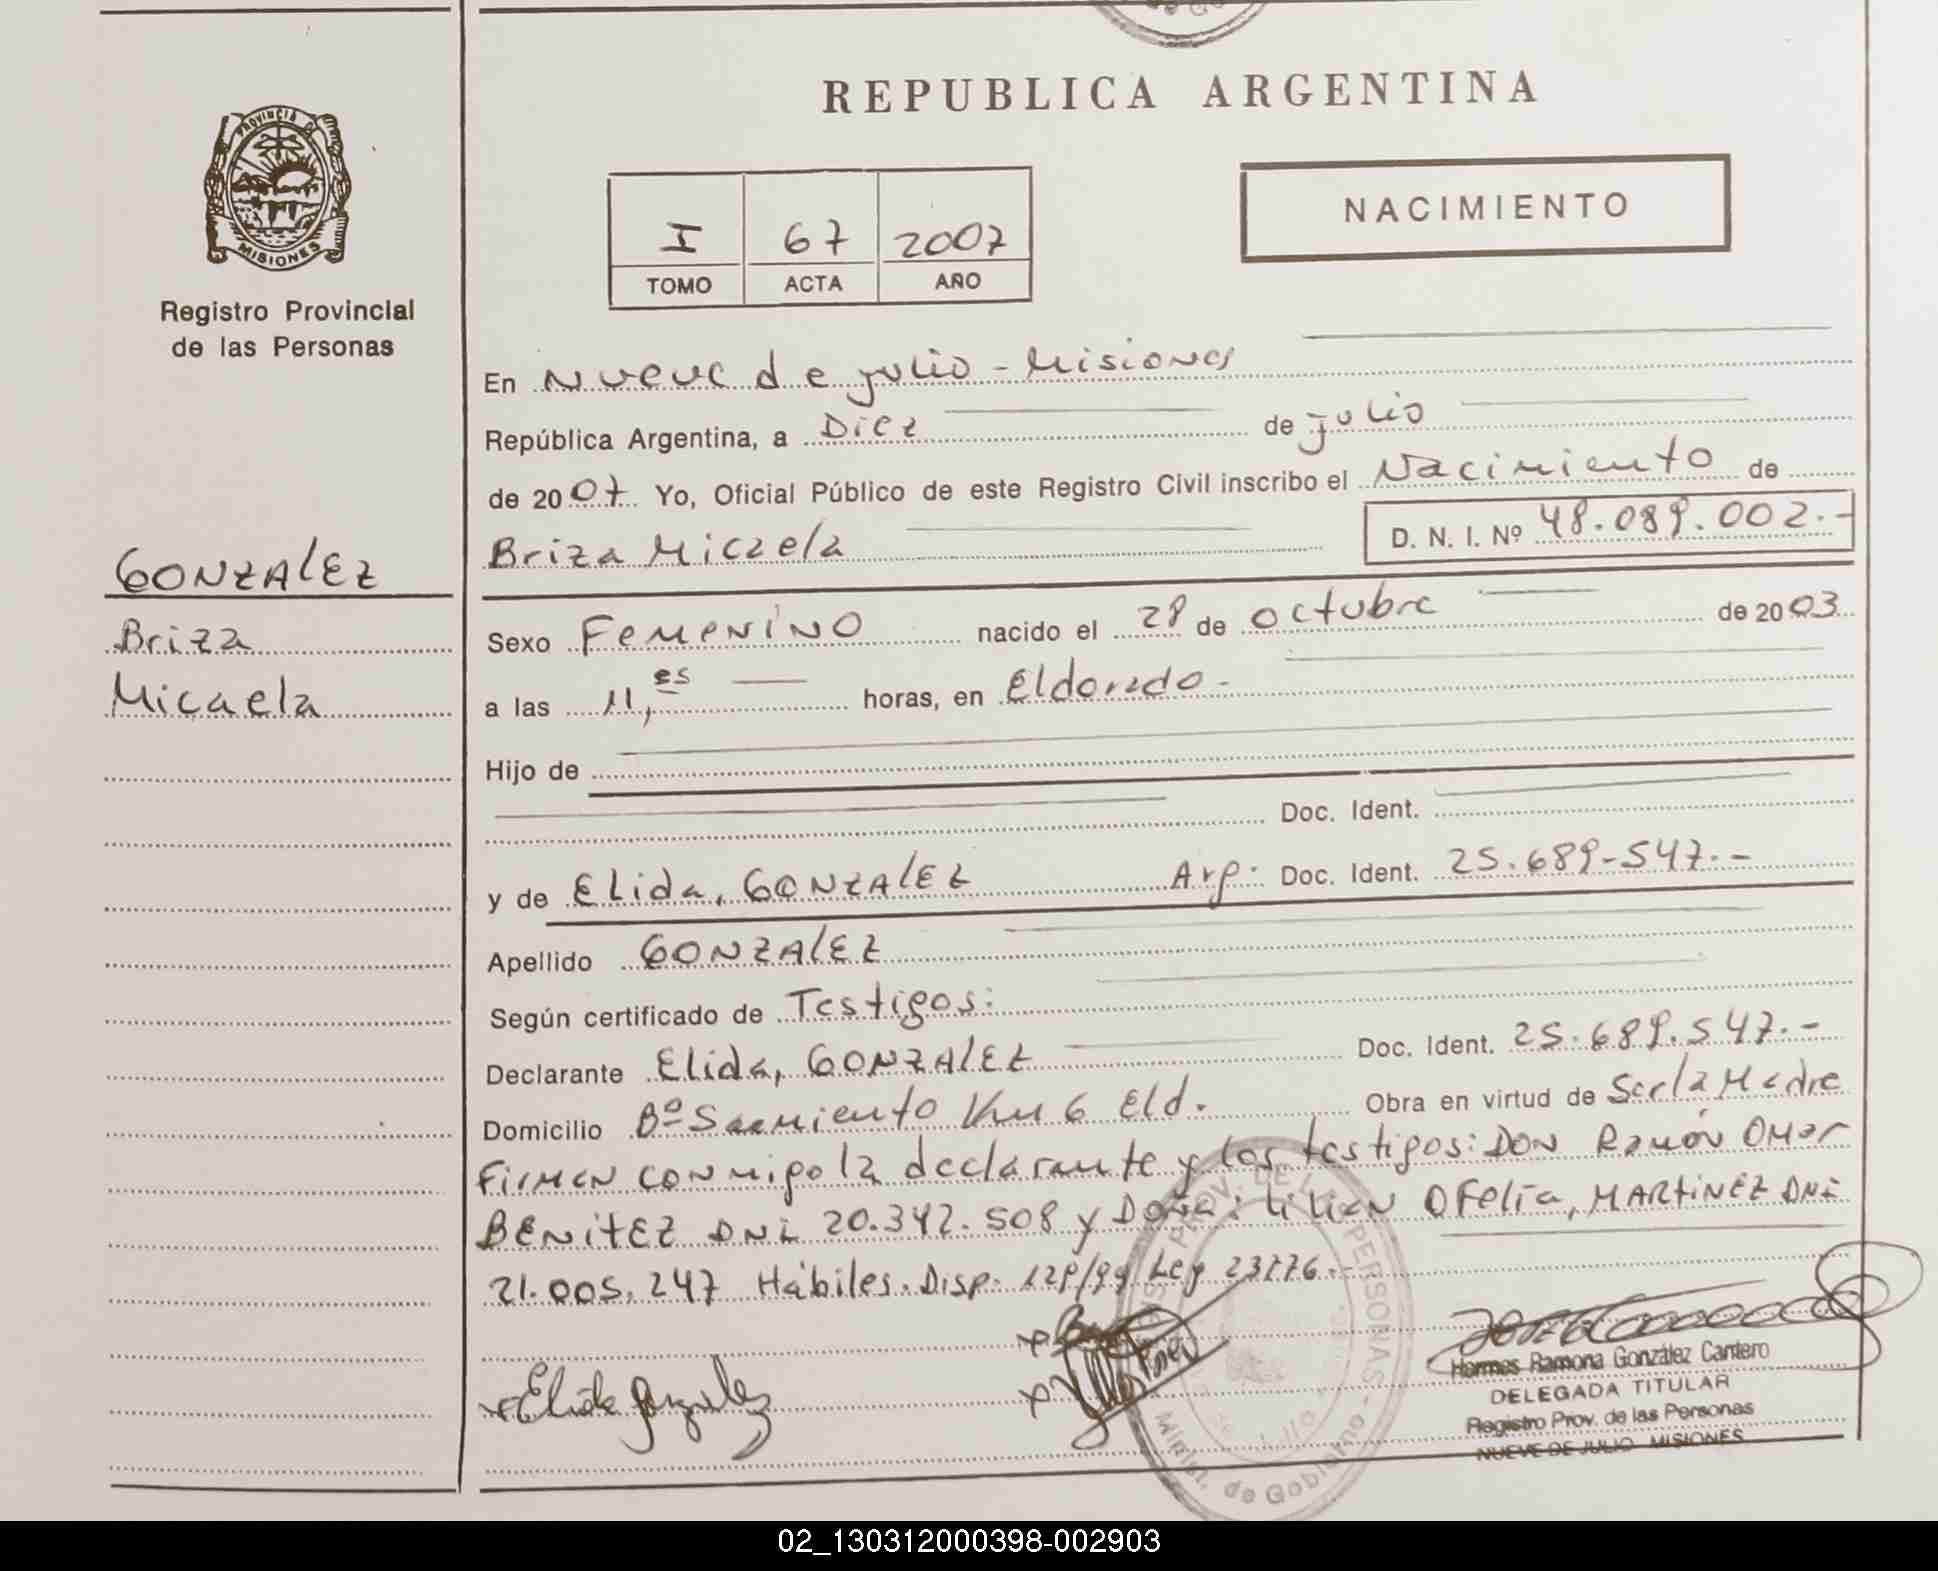 REPUBLICA ARGENTINA
PROVINCIA DE
MISIONES
Registro Provincial
de las Personas
I 67 2007
TOMO ACTA AÑO
NACIMIENTO
GONZALEZ
Briza
Micaela
En Nueve de julio - Misiones
República Argentina, a Diez de julio
de 2007 Yo, Oficial Público de este Registro Civil inscribo el Nacimiento de
Briza Micaela D. N. I. Nº 48.089.002.-
Sexo Femenino nacido el 28 de octubre de 2003
a las 11,es horas, en Eldorado-
Hijo de
Doc. Ident.
y de Elida, GONZALEZ Arg. Doc. Ident. 25.689-547.-
Apellido GONZALEZ
Según certificado de Testigos:
Declarante Elida, GONZALEZ Doc. Ident. 25.689.547.-
Domicilio Bº Sarmiento Km 6 Eld. Obra en virtud de Ser la Madre
Firman conmigo la declarante y los testigos: DON Ramón Omar
BENITEZ DNI 20.342.508 y Doña: Lilian Ofelia, MARTINEZ DNI
21.005.247 Hábiles. Disp. 129/99 Ley 23776.-
Elida Gonzalez
Hermes Ramona González Cantero
DELEGADA TITULAR
Registro Prov. de las Personas
NUEVE DE JULIO MISIONES
PROV. DE LAS PERSONAS
Minist. de Gobierno
02_130312000398-002903